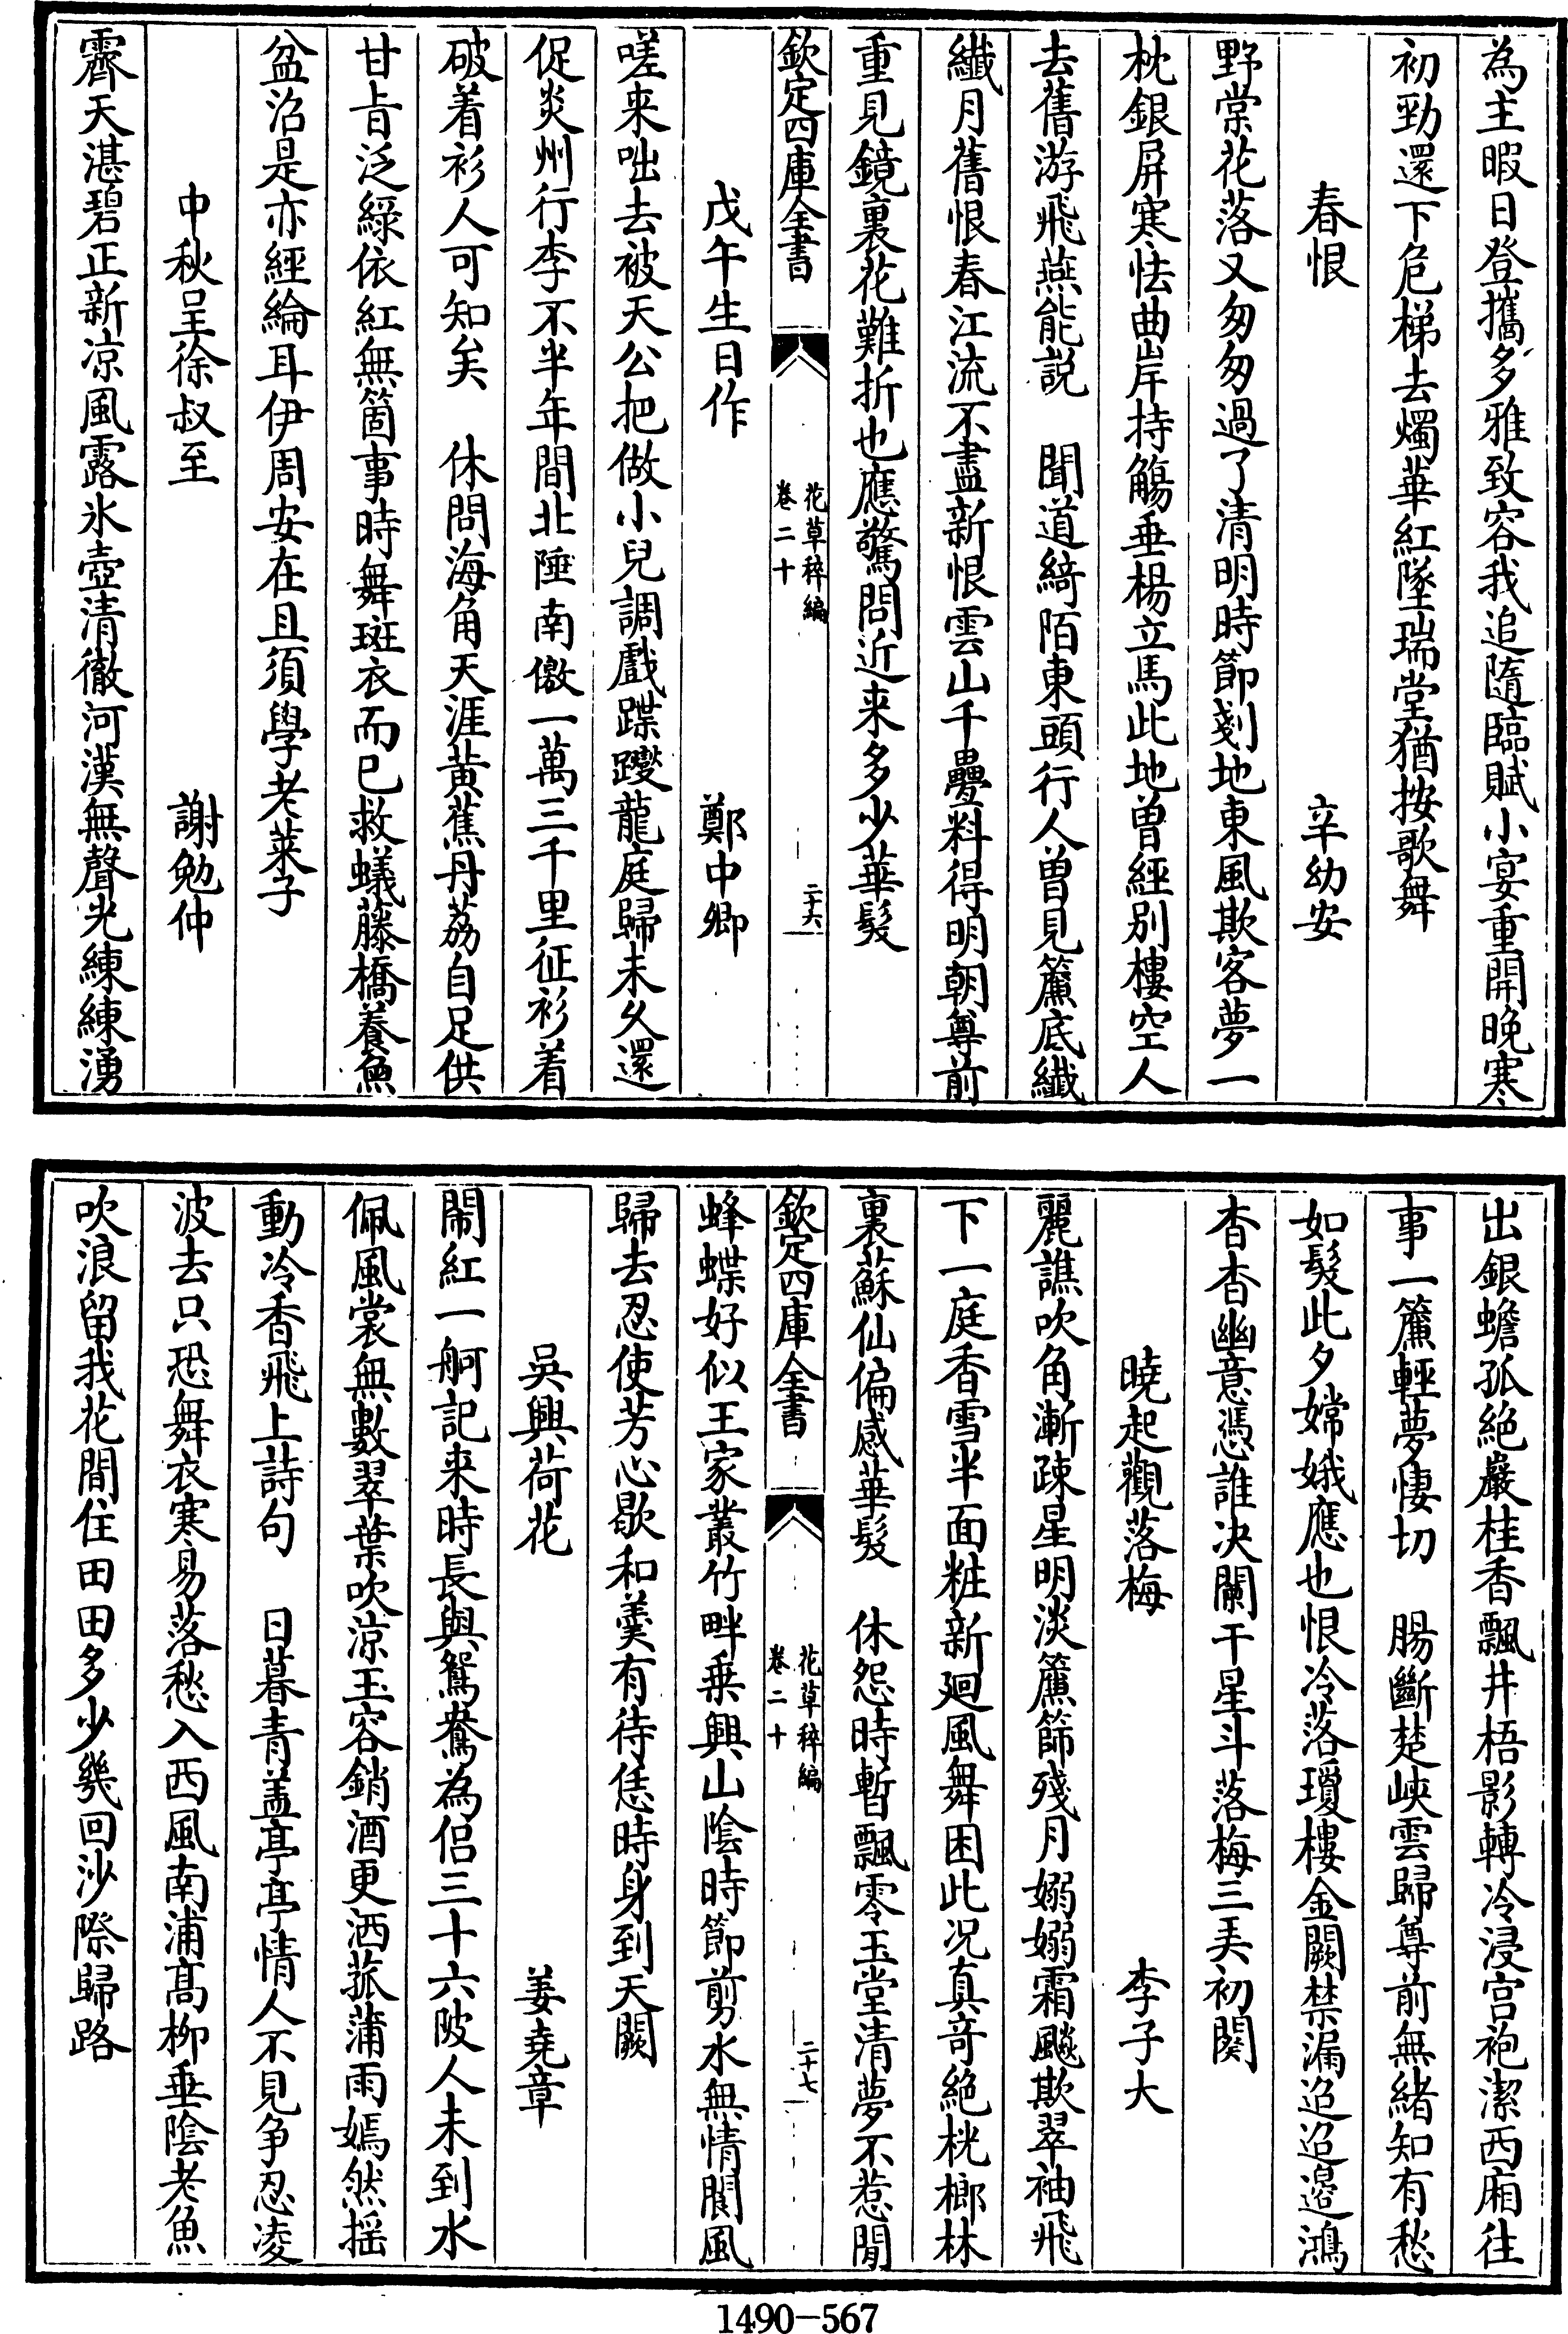 為主暇日登攜多雅致容我追隨臨賦小宴重開晚寒
初勁還下危梯去燭華紅墜瑞堂猶按歌舞
春恨　辛幼安
野棠花落又匆匆過了清明時節剗地東風欺客夢一
枕銀屏寒怯曲岸持觴垂楊立馬此地曽經别樓空人
去舊游飛燕能説　聞道綺陌東頭行人曽見簾底纖
纖月舊恨春江流不盡新恨雲山千疊料得明朝尊前
重見鏡裏花難折也應驚問近来多少華髮
欽定四庫全書　花草稡編卷二十　二十六
戊午生日作　鄭中卿
嗟来咄去被天公把做小兒調戲蹀躞龍庭歸未久還
促炎州行李不半年間北陲南徼一萬三千里征衫着
破着衫人可知矣　休問海角天涯黄蕉丹荔自足供
甘旨泛緑依紅無箇事時舞斑衣而已救蟻藤橋養魚
盆沼是亦經綸耳伊周安在且須學老莱子
中秋呈徐叔至　謝勉仲
霽天湛碧正新凉風露氷壺清徹河漢無聲光練練湧
出銀蟾孤絶巖桂香飄井梧影轉冷浸宫袍潔西廂往
事一簾輕夢悽切　腸斷楚峽雲歸尊前無緒知有愁
如髮此夕嫦娥應也恨冷落瓊樓金闕禁漏迢迢邉鴻
杳杳幽意憑誰决闌干星斗落梅三弄初闋
曉起觀落梅　李子大
麗譙吹角漸疎星明淡簾篩殘月嫋嫋霜飈欺翠袖飛
下一庭香雪半面粧新廻風舞困此况真竒絶桄榔林
裏蘇仙偏感華髮　休怨時暫飄零玉堂清夢不惹閒
欽定四庫全書　花草稡編卷二十　二十七
蜂蝶好似王家叢竹畔乗興山陰時節剪水無情閬風
歸去忍使芳心歇和羮有待恁時身到天闕
吳興荷花　姜堯章
閙紅一舸記来時長與鴛鴦為侣三十六陂人未到水
佩風裳無數翠葉吹凉玉容銷酒更洒菰蒲雨嫣然揺
動冷香飛上詩句　日暮青盖亭亭情人不見争忍凌
波去只恐舞衣寒易落愁入西風南浦髙柳垂陰老魚
吹浪留我花間住田田多少幾回沙際歸路
1490-567